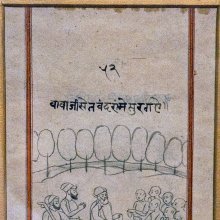 ५२
बाबाजीसेतबंदरांमेसुरगऐ॥